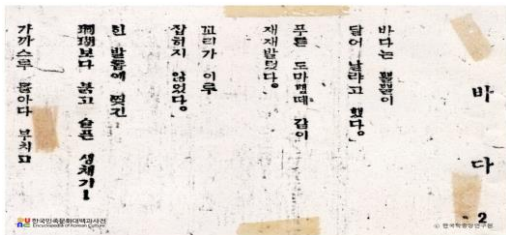 바 다 2
바다는 뿔뿔이
달어 날랴고 했다。
푸른 도마뱀떼 같이
재재발렀다。
꼬리가 이루
잡히지 않었다。
힌 발톱에 찢긴
珊瑚보다 붉고 슬픈 생채기!
가까스루 몰아다 부치고
한국민족문화대백과사전
Encyclopedia of Korean Culture
© 한국학중앙연구원